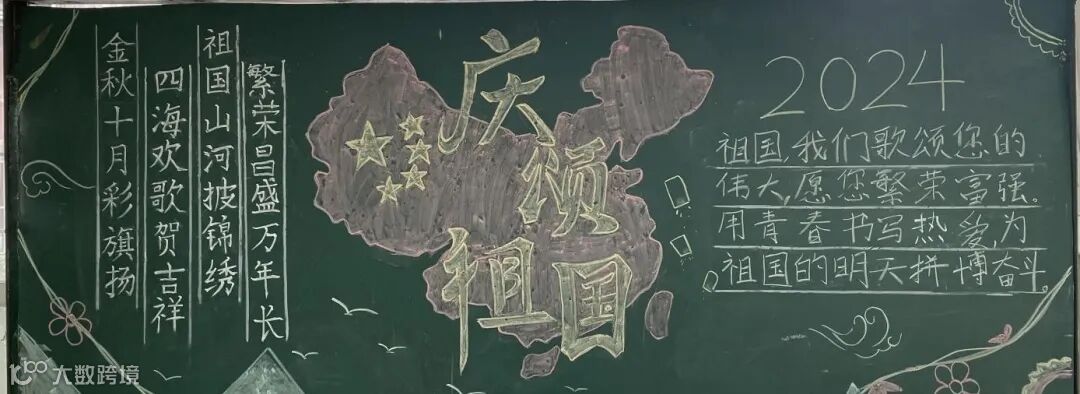 金秋十月彩旗扬
四海欢歌贺吉祥
祖国山河披锦绣
繁荣昌盛万年长
庆颂祖国
2024
祖国,我们歌颂您的
伟大,愿您繁荣富强。
用青春书写热爱,为
祖国的明天拼博奋斗。
大数跨境